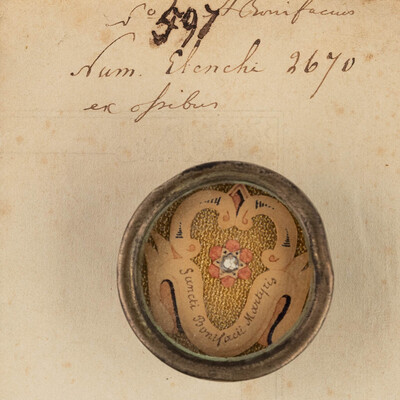 No 597 St Bonifacius
Num. Elenchi 2670
ex ossibus
Sancti Bonifacii Martyris